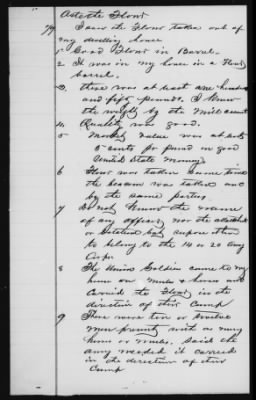 As to the Flour
74 I saw the Flour taken out of
my dwelling house
1 Good Flour in Barrel.
2 It was in my house in a Flour
barrel.
3 there was at least one hundred
and fifty pounds. I know
the weight by the Mill account
4 Quality was good.
5 Market value was at
5 cents per pound in good
United State money
6 Flour was taken same time
the bacon was taken and
by the same parties
7 do not know the name
of any officer nor the
or Battalion but suppose them
to belong to the 14 or 20 Army
Corps
8 The Union Soldiers came to my
house on mules & horses and
carried the Flour in the
direction of their Camp
9 There were ten or twelve
men present with as many
horses or mules. Said the
army needed it carried
in the direction of their
Camp